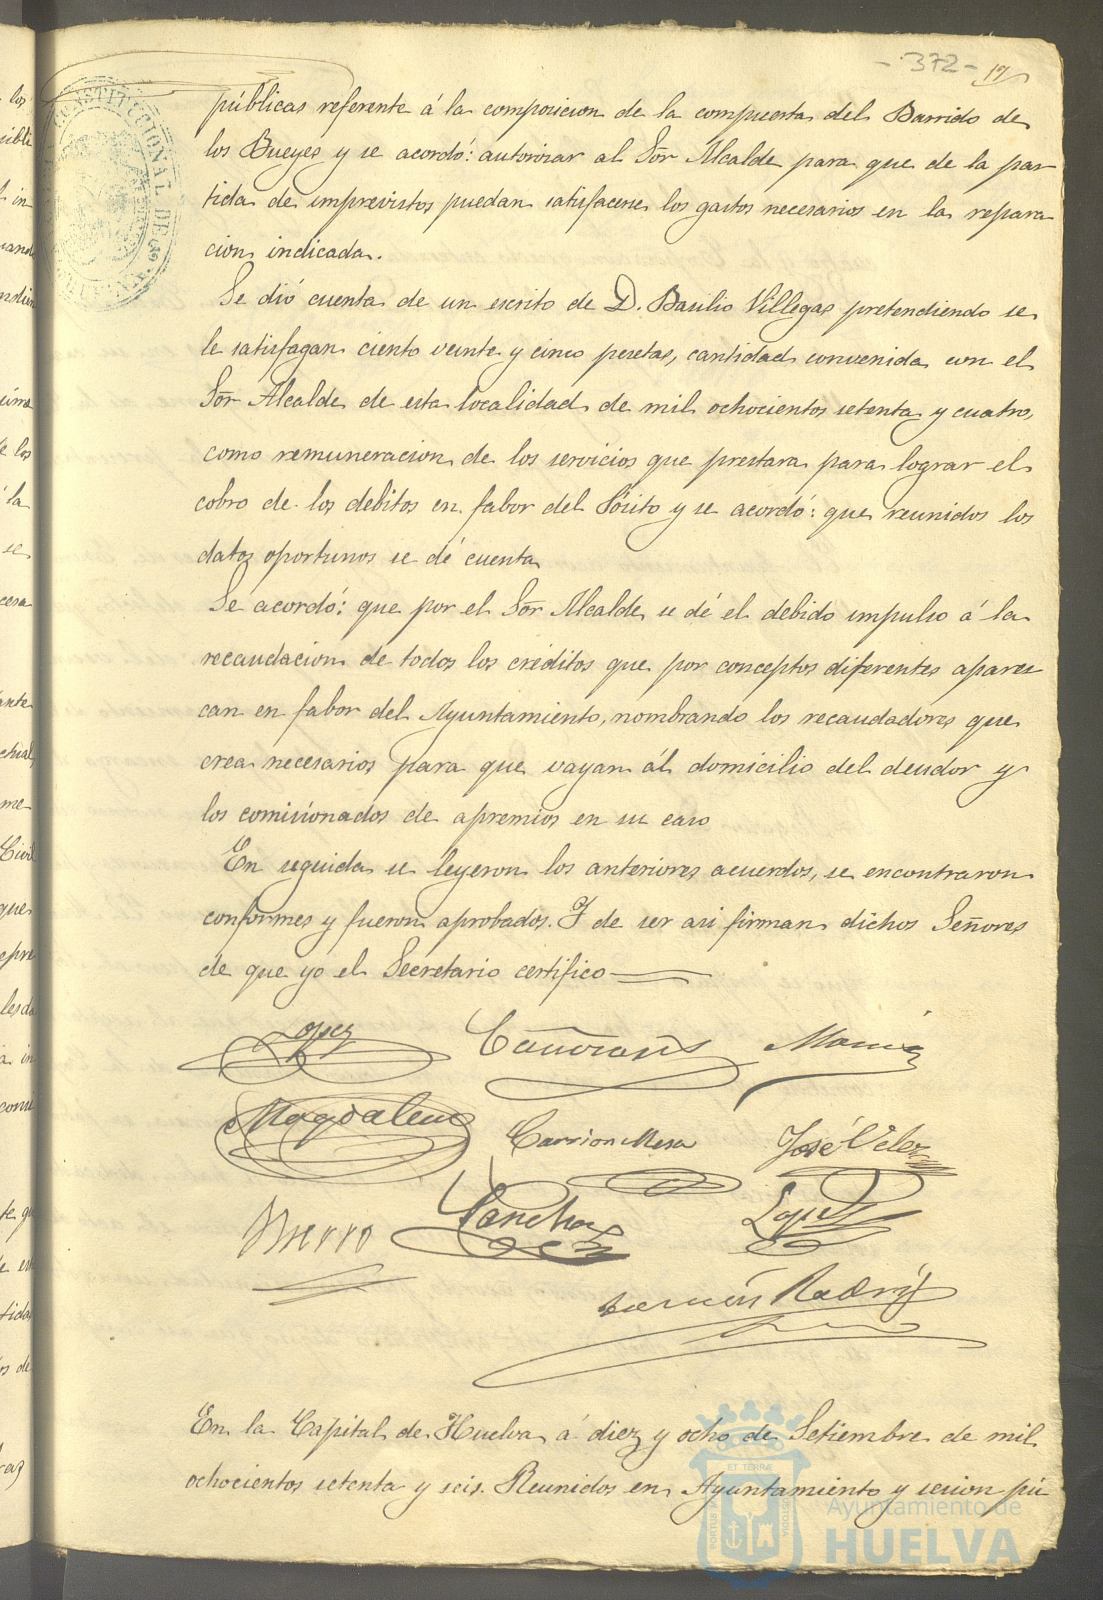 - 372 - 17
públicas referente á la composicion de la compuerta del Barrido de
los Bueyes y se acordó: autorizar al Sor Alcalde para que de la par
tida de imprevistos puedan satisfacerse los gastos necesarios en la repara
cion indicada.
Se dió cuenta de un escrito de D. Basilio Villegas pretendiendo se
le satisfagan ciento veinte y cinco pesetas, cantidad convenida con el
Sor Alcalde de esta localidad de mil ochocientos setenta y cuatro,
como remuneracion de los servicios que prestara para lograr el
cobro de los debitos en fabor del Pósito y se acordó: que reunidos los
datos oportunos se dé cuenta
Se acordó: que por el Sor Alcalde se dé el debido impulso á la
recaudacion de todos los créditos que por conceptos diferentes aparez
can en fabor del Ayuntamiento, nombrando los recaudadores que
crea necesarios para que vayan ál domicilio del deudor y
los comisionados de apremios en su caso
En seguida se leyeron los anteriores acuerdos, se encontraron
conformes y fueron aprobados. Y de ser asi firman dichos Señores
de que yo el Secretario certifico
Lopez
Magdalena Carrion Mesa José Velez
Sanchez Lopez
En la Capital de Huelva á diez y ocho de Setiembre de mil
ochocientos setenta y seis. Reunidos en Ayuntamiento y sesion pú
Ayuntamiento de
HUELVA